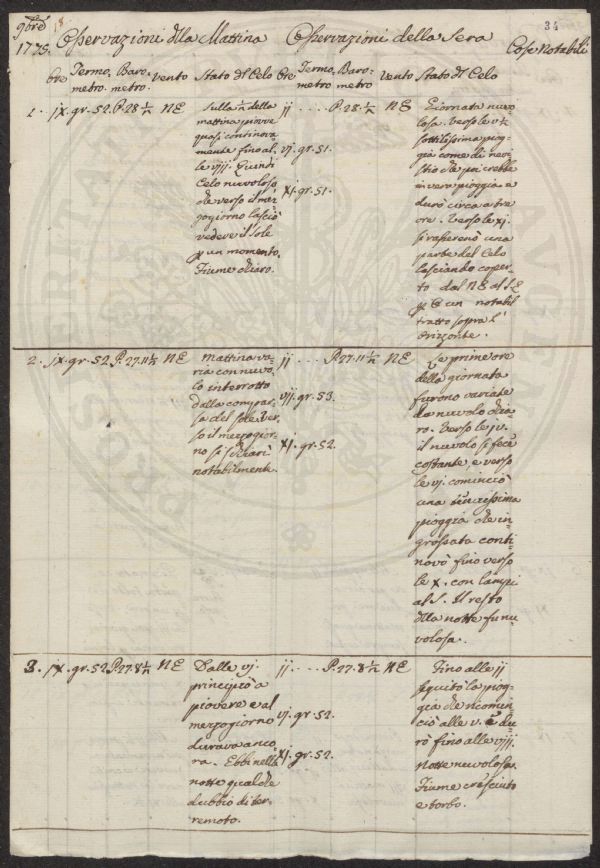 9bre 18. 34
1779. Osservazioni dlla Mattina Osservazioni della Sera Cose Notabili
Ore Termo- Baro- vento Stato dl Celo Ore Termo- Baro- vento Stato dl Celo
metro. metro. metro metro
1. jx. gr. 52. P. 28 NE
Sulla della
mattina piovve
quasi continova-
mente fino al-
le viij. Quindi
Celo nuvoloso
che verso il mez-
zogiorno lasciò
vedere il Sole
p un momento.
Fiume chiaro.
ij .... P. 28 NE
vj. gr. 51.
xj. gr. 51.
Giornata nuvo-
losa. Verso le
sottilissima piog-
gia come di nevi-
schio che poi crebbe
in vera pioggia e
durò circa a tre
ore. Verso le xj.
si rasserenò una
parte del Celo
lasciando coper-
to dal NE al SE
p E un notabil
tratto sopra l'
Orizzonte.
2. jx. gr. 52. P. 27. 11½ NE
Mattina va-
ria con nuvo-
lo interrotto
dalla compar-
sa del sole. Ver-
so il mezzogior-
no si schiarì
notabilmente.
ij .... P. 27. 11½ NE
vij. gr. 53.
xj. gr. 52.
Le prime ore
della giornata
furono variate
da nuvolo chia-
ro. Verso le iv.
il nuvolo si fece
costante, e verso
le vj. cominciò
una
pioggia che in-
grossata conti-
novò fino verso
le x. con lampi
al S. Il resto
dlla notte fu nu-
volosa.
3. jx. gr. 52. P. 27. 8½ NE
Dalle vj.
principiò a
piovere e al
mezzogiorno
durava anco-
ra. Ebbi nella
notte qualche
dubbio di ter-
remoto.
ij .... P. 27. 8½ NE
vj. gr. 52.
xj. gr. 52.
Fino alle ij
seguitò la piog-
gia che ricomin-
ciò alle v. e du-
rò fino alle viij.
Notte nuvolosa.
Fiume cresciuto
e torbo.